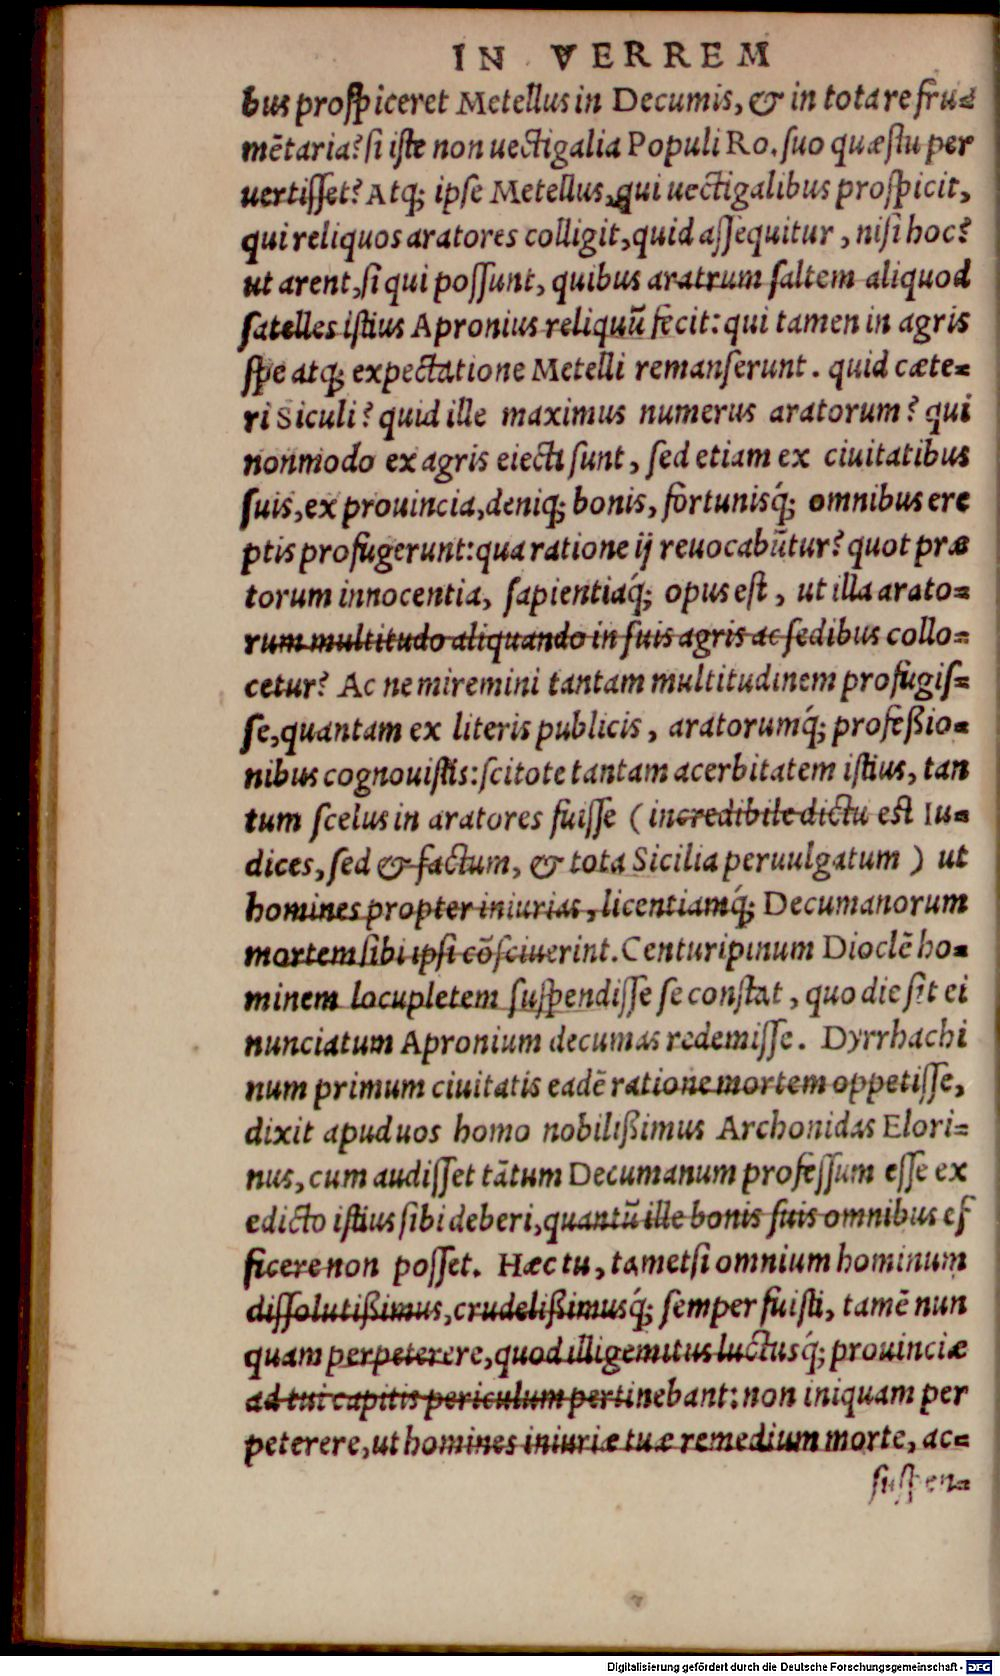 IN VERREM
bus prospiceret Metellus in Decumis, & in tota re fru-
mētaria? si iste non uectigalia Populi Ro. suo quæstu per
uertisset? Atq; ipse Metellus, qui uectigalibus prospicit,
qui reliquos aratores colligit, quid assequitur, nisi hoc?
ut arent, si qui possunt, quibus aratrum saltem aliquod
satelles istius Apronius reliquū fecit: qui tamen in agris
spe atq; expectatione Metelli remanserunt. quid cæte-
ri Siculi? quid ille maximus numerus aratorum? qui
nonmodo ex agris eiecti sunt, sed etiam ex ciuitatibus
suis, ex prouincia, deniq; bonis, fortunisq́; omnibus ere
ptis profugerunt: qua ratione ij reuocabūtur? quot præ
torum innocentia, sapientiaq́; opus est, ut illa arato-
rum multitudo aliquando in suis agris ac sedibus collo-
cetur? Ac ne miremini tantam multitudinem profugis-
se, quantam ex literis publicis, aratorumq́; profeßio-
nibus cognouistis: scitote tantam acerbitatem istius, tan
tum scelus in aratores fuisse (incredibile dictu est Iu-
dices, sed & factum, & tota Sicilia peruulgatum) ut
homines propter iniurias, licentiamq́; Decumanorum
mortem sibi ipsi cōsciuerint. Centuripinum Dioclē ho-
minem locupletem suspendisse se constat, quo die sit ei
nunciatum Apronium decumas redemisse. Dyrrhachi
num primum ciuitatis eadē ratione mortem oppetisse,
dixit apud uos homo nobilißimus Archonidas Elori-
nus, cum audisset tātum Decumanum professum esse ex
edicto istius sibi deberi, quantū ille bonis suis omnibus ef
ficere non posset. Hæc tu, tametsi omnium hominum
dissolutißimus, crudelißimusq́; semper fuisti, tamē nun
quam perpeterere, quod illi gemitus luctusq́; prouinciæ
ad tui capitis periculum pertinebant: non iniquam per
peterere, ut homines iniuriæ tuæ remedium morte, ac-
suspen-
Digitalisierung gefördert durch die Deutsche Forschungsgemeinschaft - DFG